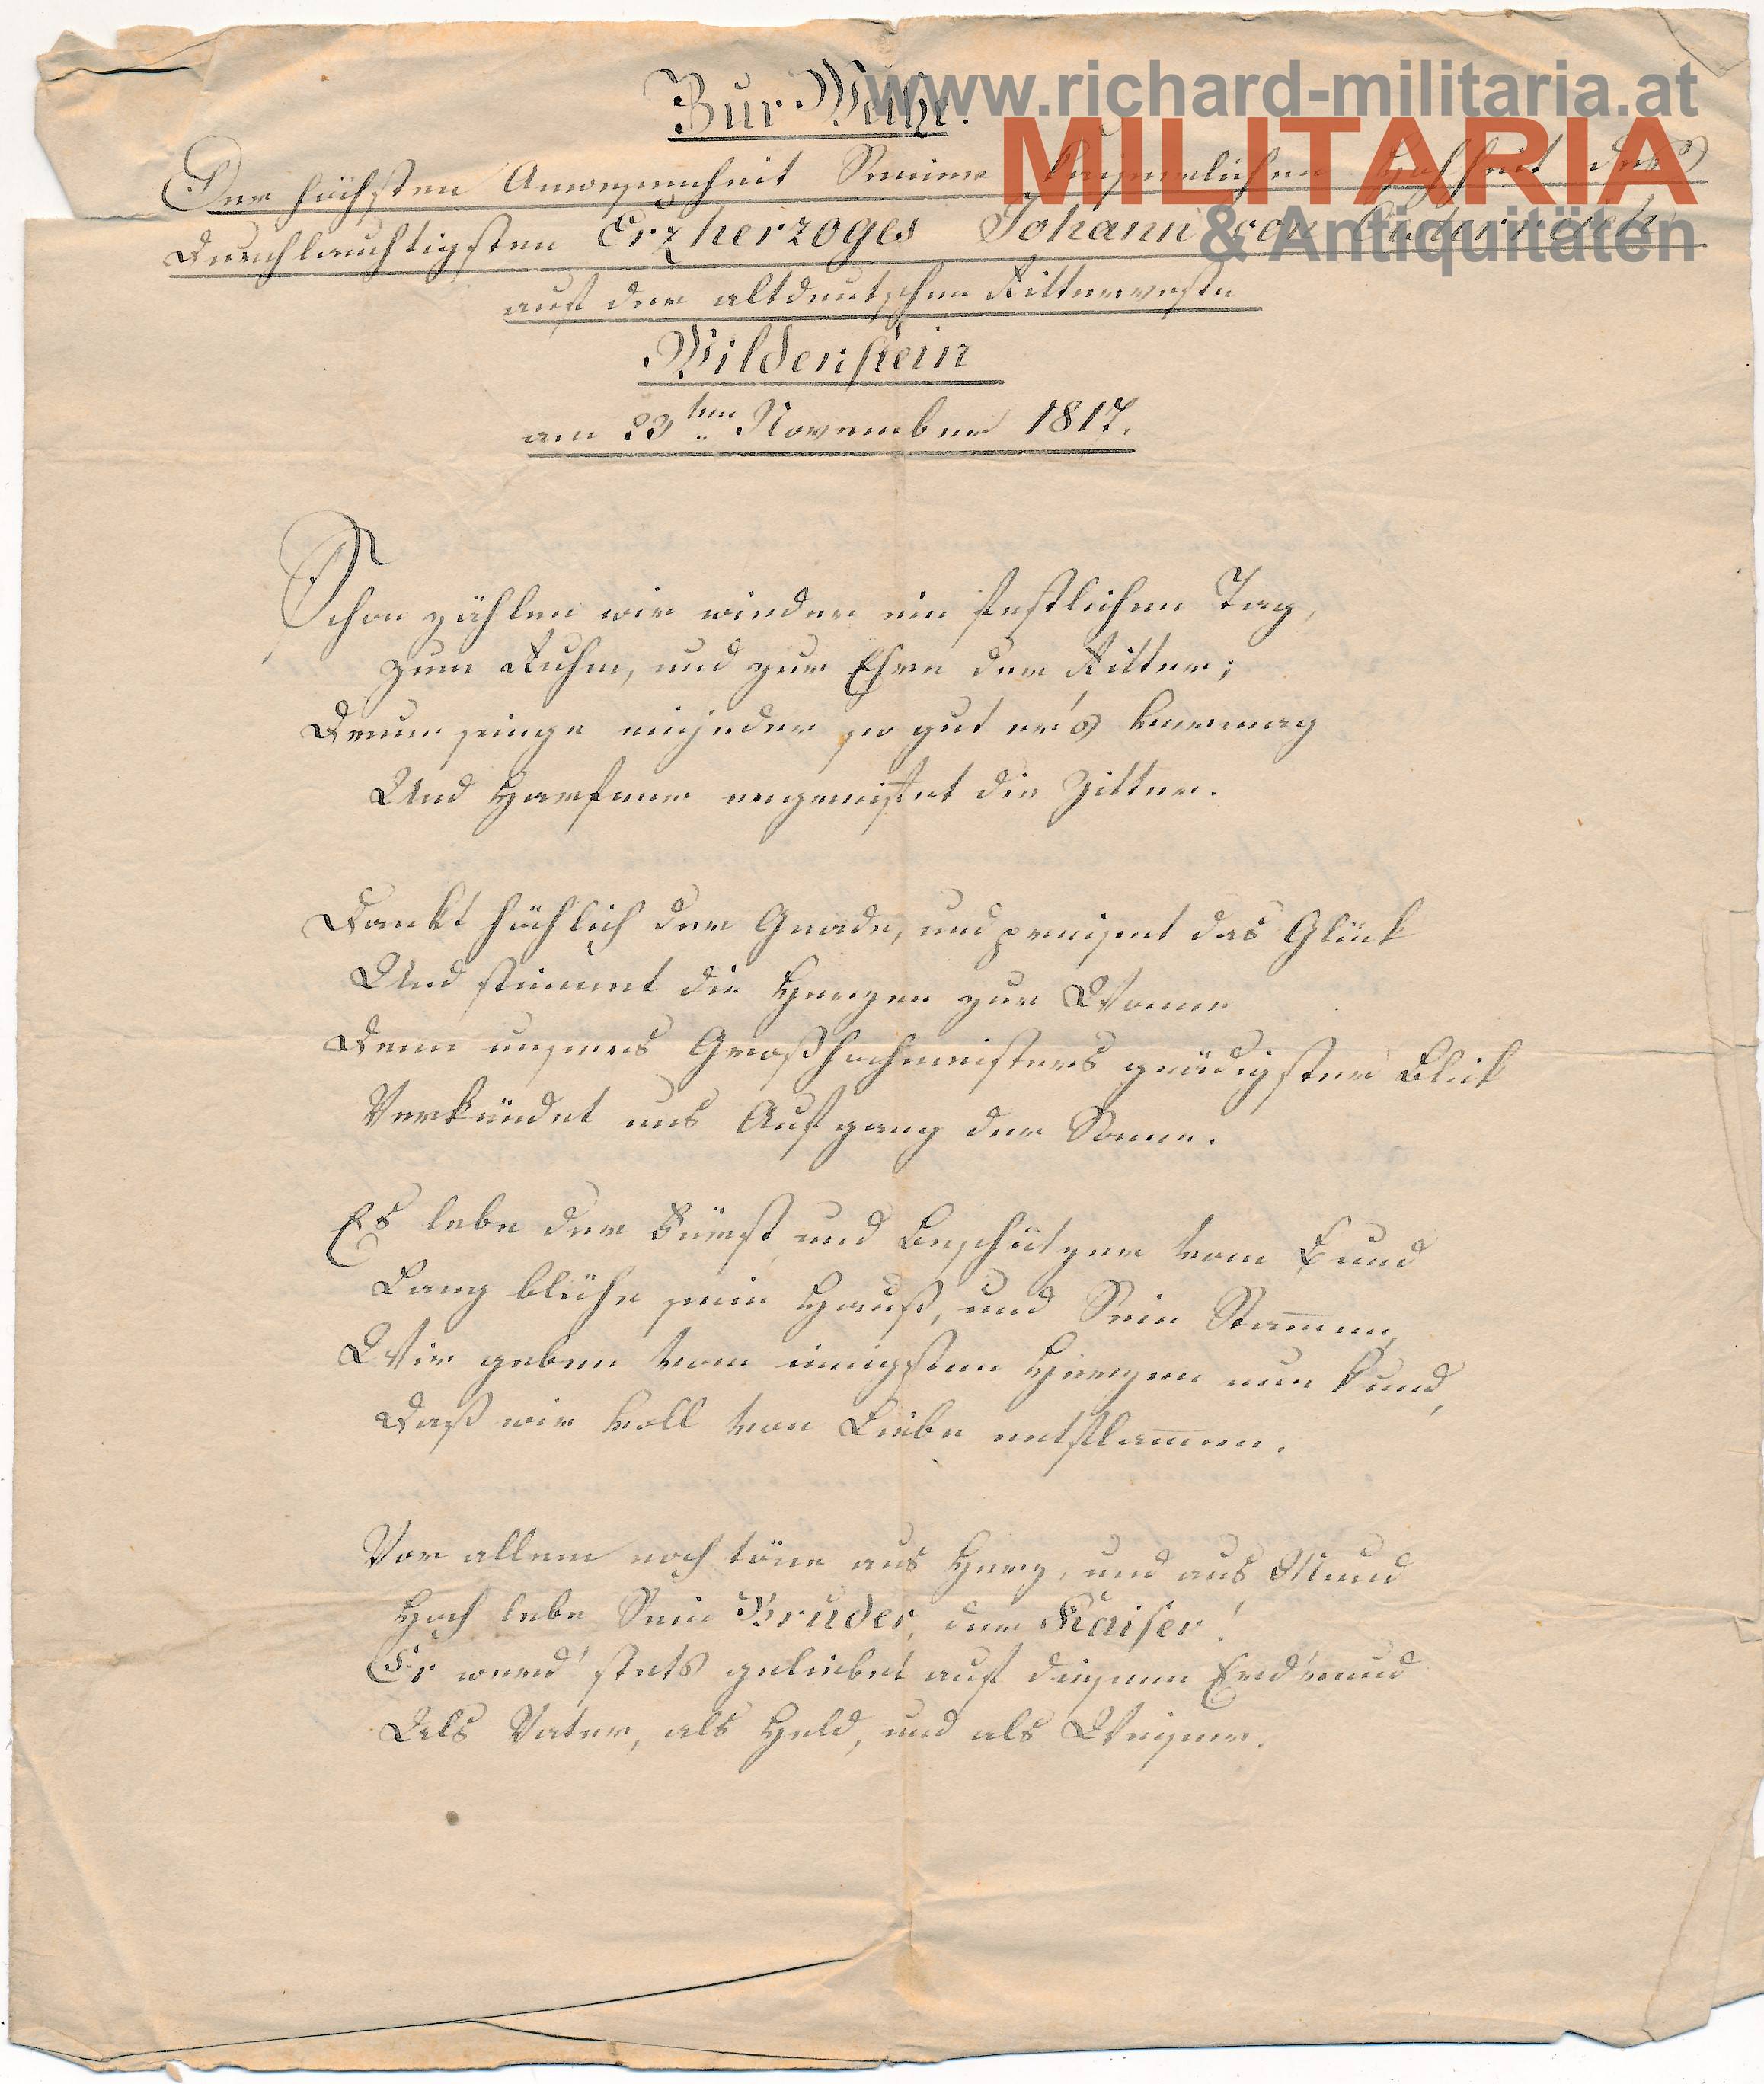 www.richard-militaria.at
MILITARIA
& Antiquitäten
Zur Weihe.
Der höchsten Anwesenheit Seiner kaiserlichen Hoheit des
Durchlauchtigsten Erzherzoges Johann von Österreich
auf der altdeutschen Ritterveste
Wildenstein
am 23ten November 1817.
Schon zählen wir wieder ein festlichen Tag,
Zum Ruhm, und zur Ehre der Ritter;
Drum singe einjeder so gut er's vermag
Und Harfner ergreifet die Zitter.
Dankt höchlich der Gnade, und preiset das Glück
Und stimmt die Herzen zur Wonne
Denn unseres Großhochmeisters gnädigster Blick
Verkündet uns Aufgang der Sonne.
Es lebe der Fürst und Beschützer vom Bund
Lang blühe sein Hauß, und Sein Stam̅en,
Wir geben vom innigsten Herzen nun kund,
Daß wir voll von Liebe entflam̅en.
Vor allem noch töne aus Herz, und aus Mund
Hoch lebe Sein Bruder, der Kaiser!
Er werd' stets geliebet auf diesem Erd'nrund
Als Vater, als Held, und als Weiser.